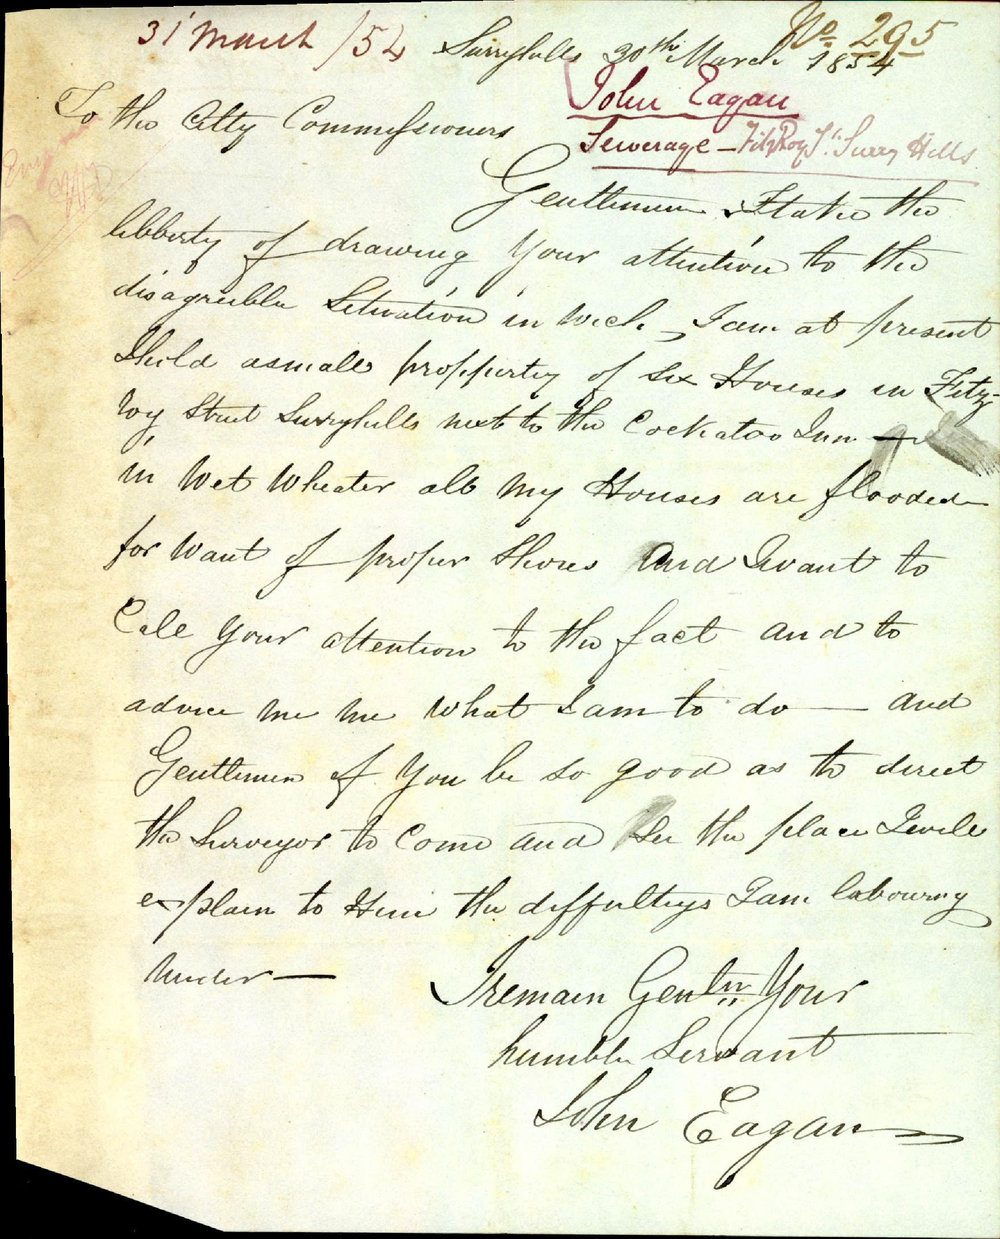 31 March /54 Surryhills 30th March 1854
No. 295
John Eagan
Sewerage - FitzRoy St. Surry Hills
To the City Commissioners
Gentlemen I take the
libberty of drawing Your attention to the
disagreeble Situation in wich I am at present
I hold a small propperty of six Houses in Fitz-
roy Street Surryhills next to the Cockatoo Inn —
in Wet Wheater all My Houses are flooded
for want of proper Shores and I want to
Call Your attention to the fact and to
advice me me what I am to do — and
Gentlemen if You be so good as to direct
the Surveyor to Come and See the place I will
explain to Him the diffultys I am labouring
under —
I remain Gentn Your
humble Servant
John Eagan